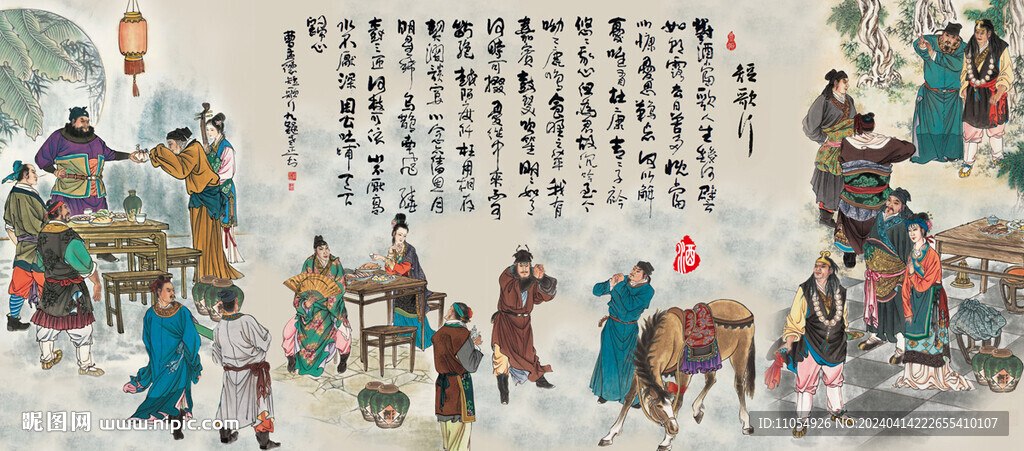 短歌行
對酒當歌人生幾何譬
如朝露去日苦多慨當
以慷憂思難忘何以解
憂唯有杜康青青子衿
悠悠我心但為君故沉吟至今
呦呦鹿鳴食野之苹我有
嘉賓鼓瑟吹笙明明如月
何時可掇憂從中來不可
斷絕越陌度阡枉用相存
契闊談讌心念舊恩月
明星稀烏鵲南飛繞
樹三匝何枝可依山不厭高
水不厭深周公吐哺天下
歸心
曹孟德短歌行
酒
昵图网 www.nipic.com
ID:11054926 NO:20240414222655410107